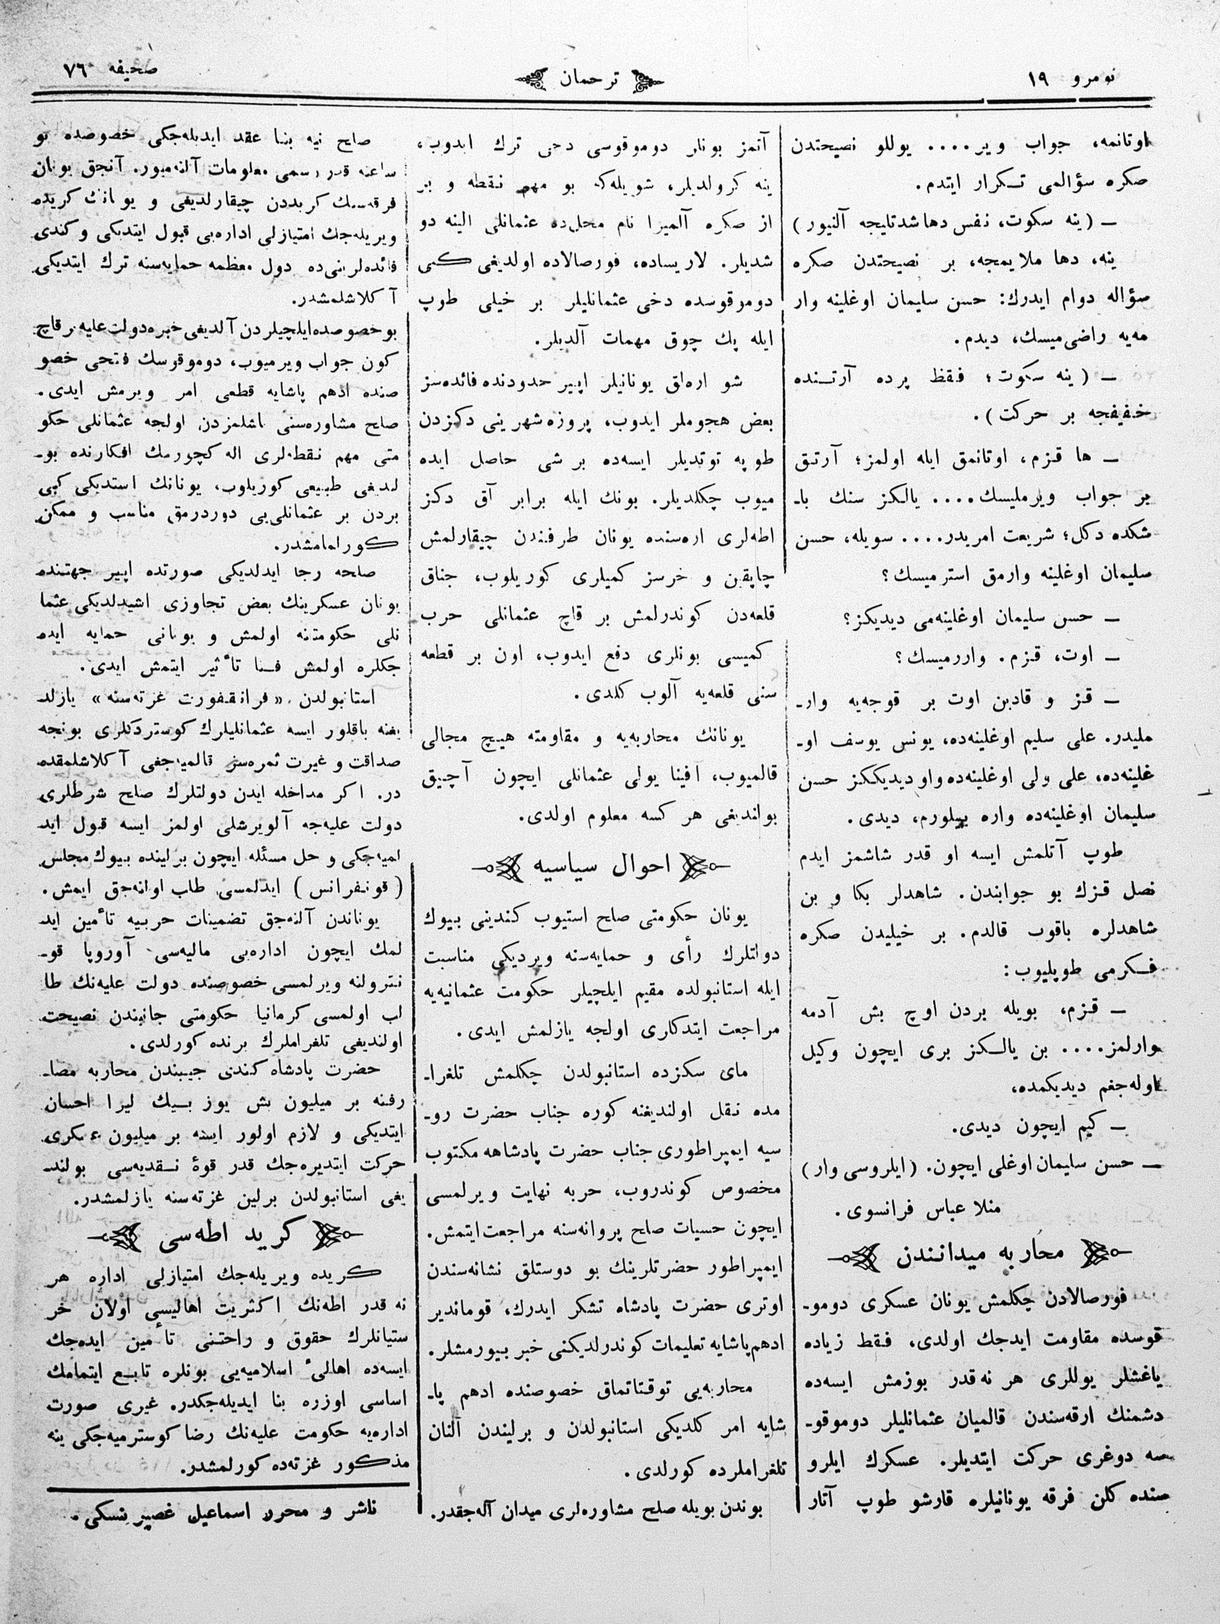 نومرو ١٩
ترجمان
صحیفه ٧٦
اوتانمه، جواب ویر.... یوللو نصیحتدن
صکره سؤالمی تـکرار ایتدم.
ـ (ینه سکوت، نفس دها شدتلیجه آلنیور)
ینه، دها ملایمجه، بر نصیحتدن صکره
سؤاله دوام ایدرك: حسن سلیمان اوغلینه وار
مه‌یه راضی‌میسك، دیدم.
ـ (ینه سکوت؛ فـقظ پرده آرتـنده
خـفیفجه بر حرکت).
ـ ها قـزم، اوتانمق ایله اولمز؛ آرتـق
بر جواب ویرملیسك.... یالـکز سنك باـ
شکده دکل؛ شریعت امریدر.... سویله، حسن
سلیمان اوغلینه وارمق استرمیسك؟
ـ حسن سلیمان اوغلینه‌می دیدیکز؟
ـ اوت، قـزم. واررمیسك؟
ـ قـز و قادین اوت بر قوجه‌یه وارـ
ملیدر. علی سلیم اوغلینه‌ده، یونس یوسف اوـ
غلینه‌ده، علی ولی اوغلینه‌ده واو دیدیککز حسن
سلیمان اوغلینه‌ده واره بیلورم، دیدی.
طوپ آتلمش ایسه او قدر شاشمز ایدم
نصل قـزك بو جوابندن. شاهدلر بکا و بن
شاهدلره باقوب قالدم. بر خیلیدن صکره
فـکرمی طوپلیوب:
ـ قـزم، بویله بردن اوچ بش آدمه
وارلمز.... بن یالـکز بری ایچون وکیل
اوله‌جغم دیدیکمده،
ـ کیم ایچون دیدی.
ـ حسن سلیمان اوغلی ایچون. (ایلروسی وار)
منلا عباس فرانسوی.
محاربه میدانندن
فورصالادن چکلمش یونان عسکری دوموـ
قوسده مقاومت ایدجك اولدی، فـقط زیاده
یاغشلر یوللری هر نه‌قدر بوزمش ایسه‌ده
دشمنك ارقه‌سندن قالمیان عثمانلیلر دوموقوـ
سه دوغری حرکت ایتدیلر. عسکرك ایلرو
سنده کلن فرقه یونانیلره قارشو طوپ آتار
آتمز یونانلر دوموقوسی دخی ترك ایدوب،
ینه کرولدیلر، شویله‌که بو مهم نـقطه و بر
از صکره آلمیرا نام محلده عثمانلی الینه دو
شدیلر. لاریساده، فورصالاده اولدیغی کـبی
دوموقوسده دخی عثمانلیلر بر خیلی طوپ
ایله پك چوق مهمات آلدیلر.
شو ارەلق یونانیلر اپیر حدودنده فائده‌سز
بعض هجوملر ایدوب، پروزه شهرینی دکزدن
طوپه توتدیلر ایسه‌ده بر شی حاصل ایده
میوب چکلدیلر. بونك ایله برابر آق دکز
اطه‌لری ارەسنده یونان طرفندن چیقارلمش
چاپقین و خرسز کمیلری کوریلوب، جناق
قلعه‌دن کوندرلمش بر قاچ عثمانلی حرب
کمیسی بونلری دفع ایدوب، اون بر قطعه
سنی قلعه‌یه آلوب کلدی.
یونانك محاربه‌یه و مقاومته هیـچ مجالی
قالمیوب، افینا یولی عثمانلی ایچون آچیق
بولندیغی هر کسه معلوم اولدی.
احوال سیاسیه
یونان حکومتی صلح استیوب کندینی بیوك
دولتلرك رأی و حمایه‌سنه ویردیکی مناسبت
ایله استانبولده مقیم ایلچیلر حکومت عثمانیه‌یه
مراجعت ایتدکاری اولجه یازلمش ایدی.
مای سکزده استانبولدن چکلمش تلغراـ
مده نـقل اولندیغنه کوره جناب حضرت روـ
سیه ایمپراطوری جناب حضرت پادشاهه مکتوب
مخصوص کوندروب، حربه نهایت ویرلمسی
ایچون حسیات صلح پروانه‌سنه مراجعت ایتمش.
ایمپراطور حضرتلرینك بو دوستلق نشانه‌سندن
اوتری حضرت پادشاه تشکر ایدرك، قوماندیر
ادهم پاشایه تعلیمات کوندرلدیکنی خبر بـیورمشلر.
محاربه‌یی توقتاتماق خصوصنده ادهم پاـ
شایه امر کلدیکی استانبولدن و برلیندن آلنان
تلغراملرده کورلدی.
بوندن بویله صلح مشاوره‌لری میدان آله‌جقدر.
صلح نیه بنا عقد ایدیله‌جکی خصوصده بو
ساعته قدر رسمی معلومات آلنه‌میور. آنجق یونان
فرقه‌سنك کریددن چیقارلدیغی و یونانك کریده
ویریله‌جك امتیازلی اداره‌یی قبول ایتدیکی وکندی
فائده‌لرینی‌ده دول معظمه حمایه‌سنه ترك ایتدیکی
آکلاشلمشدر.
بو خصوصده ایلچیلردن آلدیغی خبره دولت علیه بر قاچ
کون جواب ویرمیوب، دوموقوسك فتحی خصو
صنده ادهم پاشایه قطعی امر ویرمش ایدی.
صلح مشاوره‌سنی باشلمزدن اولجه عثمانلی حکو
متی مهم نـقطه‌لری اله کچورمك افکارنده بوـ
لندیغی طبیعی کوریلوب، یونانك استدیکی کبی
بردن بر عثمانلی‌یی دوردرمق مناسب و ممکن
کـورلمامشدر.
صلحه رجا ایدلدیکی صورتده اپیر جهتنده
یونان عسکرینك بعض تجاوزی اشیدلدیکی عثما
نلی حکومتنه اولمش و یونانی حمایه ایده
جکلره اولمش فـنا تأثیر ایتمش ایدی.
استانبولدن «فرانقفورت غزته‌سنه» یازلد
یغنه باقلور ایسه عثمانلیلرك کوستردکلری بونجه
صداقت و غیرت ثمره‌سز قالمیه‌جغی آکلاشلمقده
در. اکر مداخله ایدن دولتلرك صلح شرطلری
دولت علیه‌جه آلویرشلی اولمز ایسه قبول اید
لمیه‌جکی و حل مسئله ایچون برلینده بیوك مجلس
(قونفرانس) ایدلمسی طلب اولنه‌جق ایمش.
یوناندن آلنه‌جق تضمینات حربیه تأمین اید
لمك ایچون اداره‌یی مالیه‌سی آوروپا قوـ
نترولنه ویرلمسی خصوصنده دولت علیه‌نك طا
لب اولمسی کرمانیا حکومتی جانبندن نصیحت
اولندیغی تلغراملرك برنده کورلدی.
حضرت پادشاه کندی جیبندن محاربه مصاـ
رفنه بر میلیون بش یوز بـیك لیرا احسان
ایتدیکی و لازم اولور ایسه بر میلیون عسکری
حرکت ایتدیره‌جك قدر قوهٔ نـقدیه‌سی بولندـ
یغی استانبولدن برلین غزته‌سنه یازلمشدر.
کرید اطه‌سی
کـریده ویریله‌جك امتیازلی اداره هر
نه قدر اطه‌نك اکثریت اهالیسی اولان خر
ستیانلرك حقوق و راحتـنی تأمین ایده‌جك
ایسه‌ده اهالیٔ اسلامیه‌یی بونلره تابـع ایتمامك
اساسی اوزره بنا ایدیله‌جکدر. غیری صورت
اداره‌یه حکومت علیه‌نك رضا کوسترمیه‌جکی ینه
مذکـور غزته‌ده کورلمشدر.
ناشر و محرر اسماعیل غصپرنـسکی.